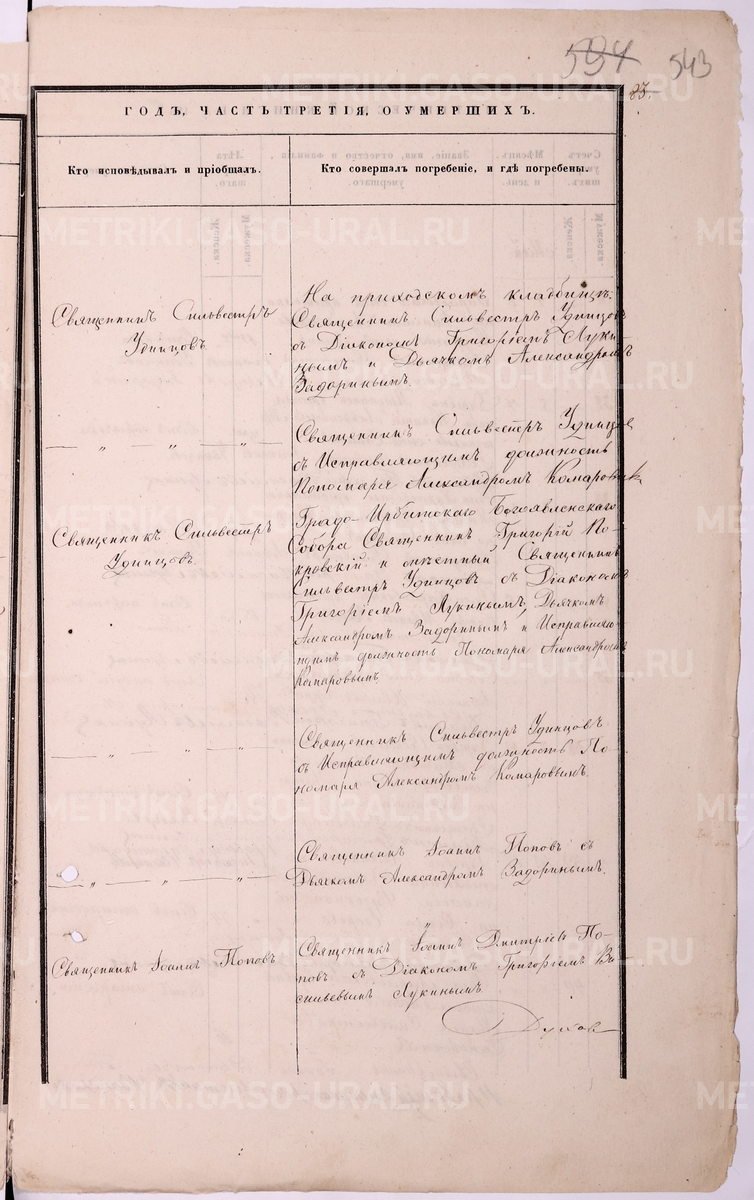 594 543
83.
ГОДЪ, ЧАСТЬ ТРЕТІЯ, О УМЕРШИХЪ.
Кто исповѣдывалъ и пріобщалъ.
Кто совершалъ погребеніе, и гдѣ погребены.
На приходскомъ кладбищѣ.
Священникъ Сильвестръ
Удинцовъ
Священникъ Сильвестръ Удинцовъ
съ Діакономъ Григоріемъ Луки-
нымъ и Дьячкомъ Александромъ
Задоринымъ.
— „ — „ — „ —
Священникъ Сильвестръ Удинцов
съ Исправляющимъ должность
Пономаря Александромъ Комаровым
Священникъ Сильвестръ
Удинцовъ.
Градо-Ирбитскаго Богоявленскаго
Собора Священникъ Григорій По-
кровскій и Священникъ
Сильвестръ Удинцов съ Діаконом
Григоріемъ Лукинымъ, Дьячкомъ
Александромъ Задоринымъ и Исправляю-
щимъ должность Пономаря Александромъ
Комаровымъ
— „ — „ — „ —
Священникъ Сильвестръ Удинцовъ
съ Исправляющимъ должность По-
номаря Александромъ Комаровымъ.
— „ — „ — „ —
Священникъ Іоаннъ Поповъ съ
Дьячкомъ Александромъ Задоринымъ.
Священникъ Іоаннъ Поповъ
Священникъ Іоаннъ Дмитріевъ По-
повъ съ Діакономъ Григоріемъ Ва-
сильевымъ Лукинымъ
METRIKI.GASO-URAL.RU